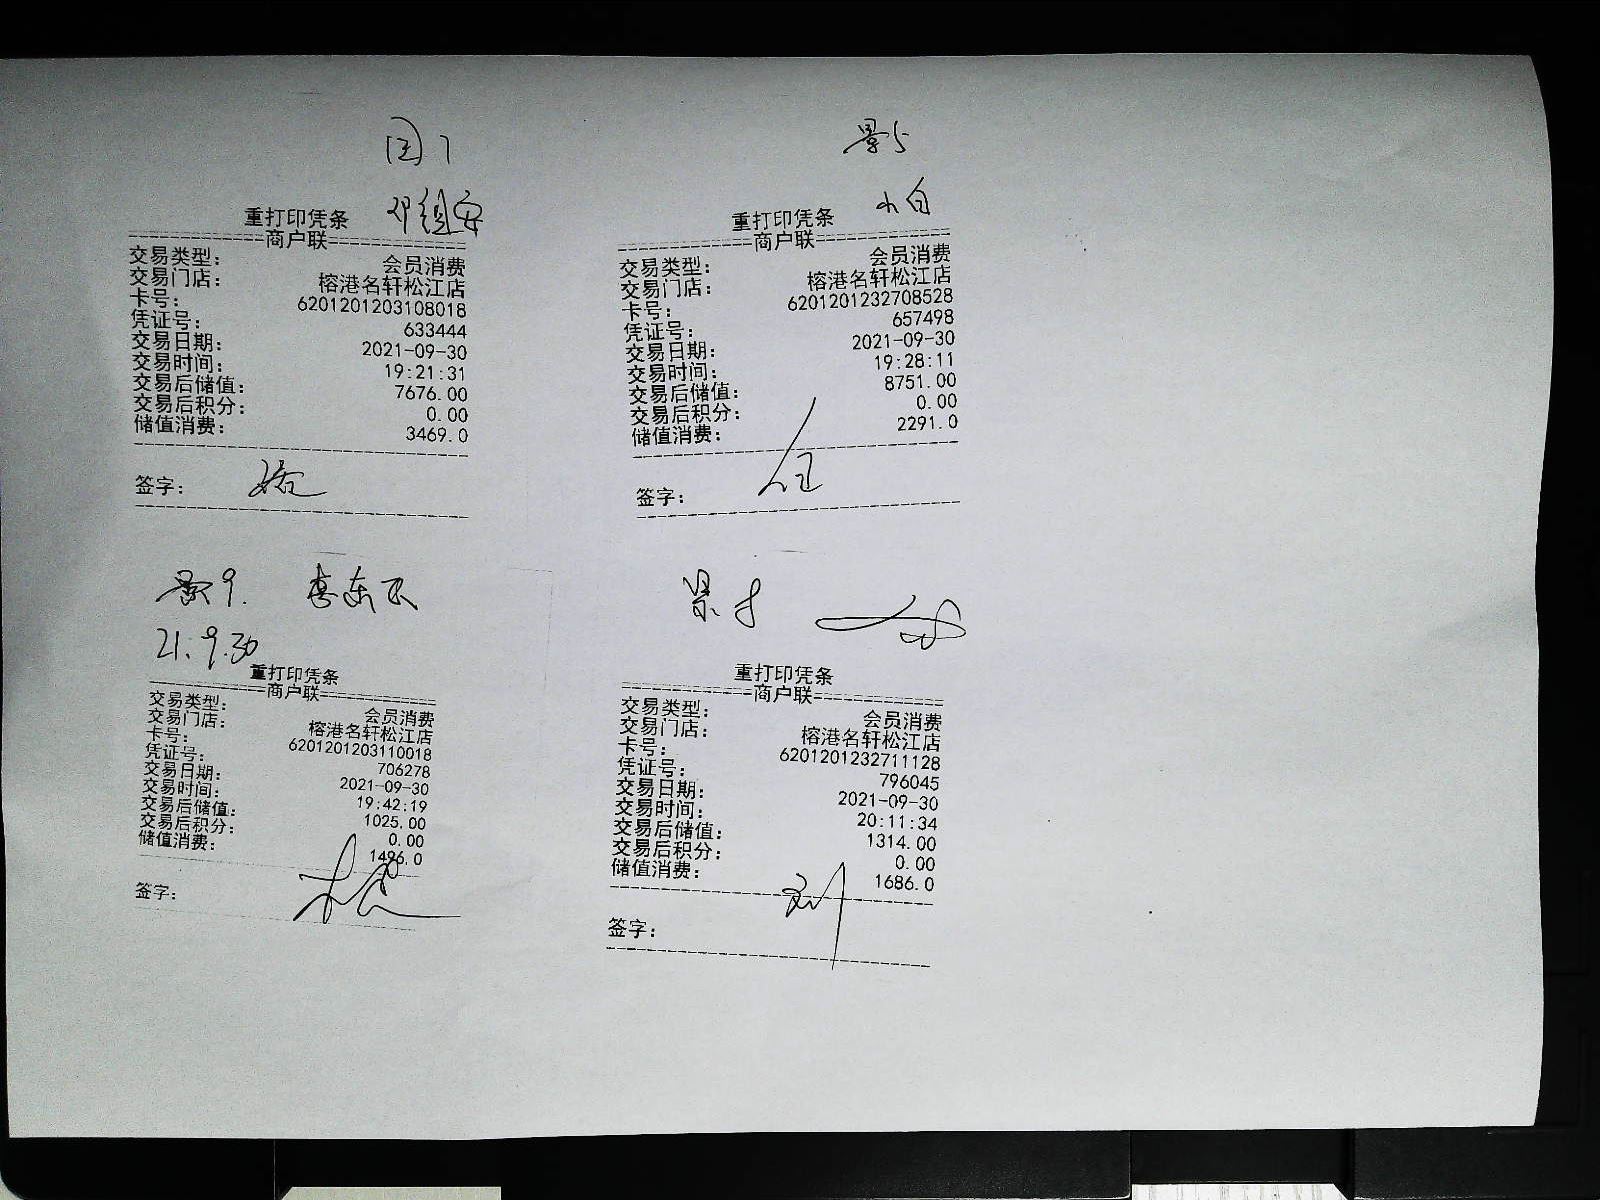 国7
邓组安
重打印凭条
商户联
交易类型: 会员消费
交易门店: 榕港名轩松江店
卡号: 6201201203108018
凭证号: 633444
交易日期: 2021-09-30
交易时间: 19:21:31
交易后储值: 7676.00
交易后积分: 0.00
储值消费: 3469.0
签字:
景5
小白
重打印凭条
商户联
交易类型: 会员消费
交易门店: 榕港名轩松江店
卡号: 6201201232708528
凭证号: 657498
交易日期: 2021-09-30
交易时间: 19:28:11
交易后储值: 8751.00
交易后积分: 0.00
储值消费: 2291.0
签字:
景9. 李东
21.9.30
重打印凭条
商户联
交易类型: 会员消费
交易门店: 榕港名轩松江店
卡号: 6201201203110018
凭证号: 706278
交易日期: 2021-09-30
交易时间: 19:42:19
交易后储值: 1025.00
交易后积分: 0.00
储值消费: 1496.0
签字:
景
重打印凭条
商户联
交易类型: 会员消费
交易门店: 榕港名轩松江店
卡号: 6201201232711128
凭证号: 796045
交易日期: 2021-09-30
交易时间: 20:11:34
交易后储值: 1314.00
交易后积分: 0.00
储值消费: 1686.0
刘
签字: